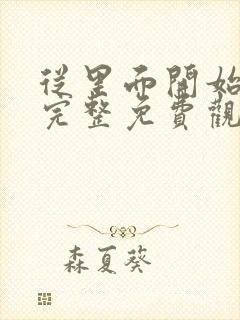 從里而開始
完整免費觀
森夏葵